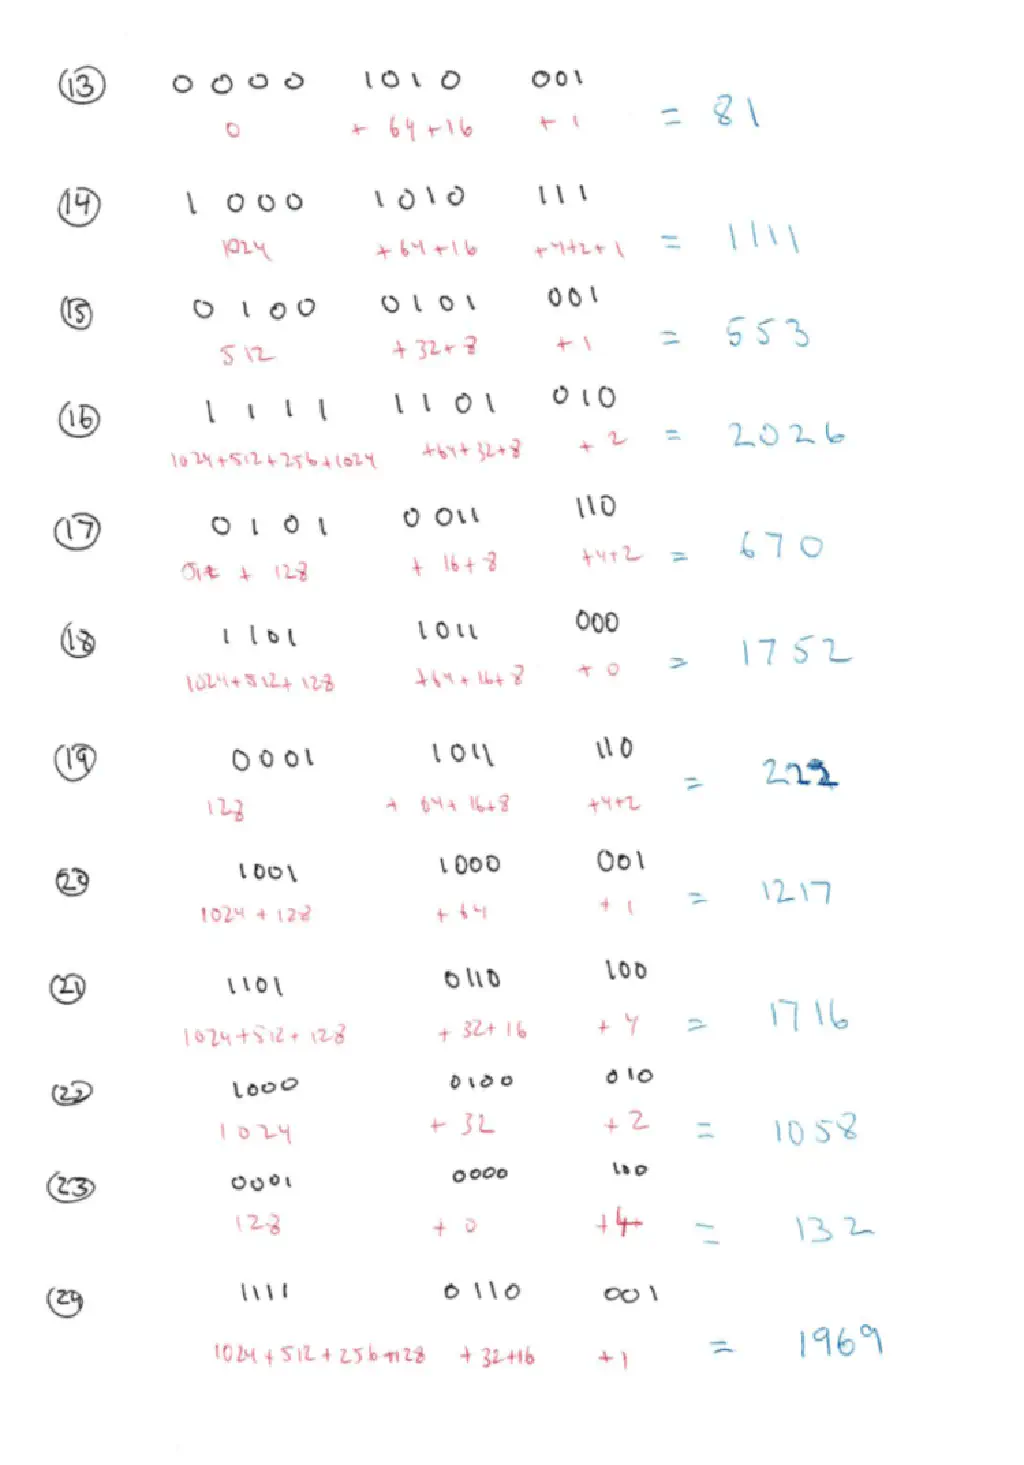 13 0000 1010 001
0 + 64+16 + 1 = 81
14 1000 1010 111
1024 +64+16 +4+2+1 = 1111
15 0100 0101 001
512 +32+8 +1 = 553
16 1111 1101 010
1024+512+256+1024 +64+32+8 + 2 = 2026
17 0101 0011 110
+ 128 + 16+8 +4+2 = 670
18 1101 1011 000
1024+512+128 +64+16+8 + 0 = 1752
19 0001 1011 110
128 + 64+16+8 +4+2 = 222
20 1001 1000 001
1024 + 128 + 64 + 1 = 1217
21 1101 0110 100
1024+512+128 + 32+16 + 4 = 1716
22 1000 0100 010
1024 + 32 +2 = 1058
23 0001 0000 100
128 + 0 +4 = 132
24 1111 0110 001
1024+512+256+128 + 32+16 +1 = 1969